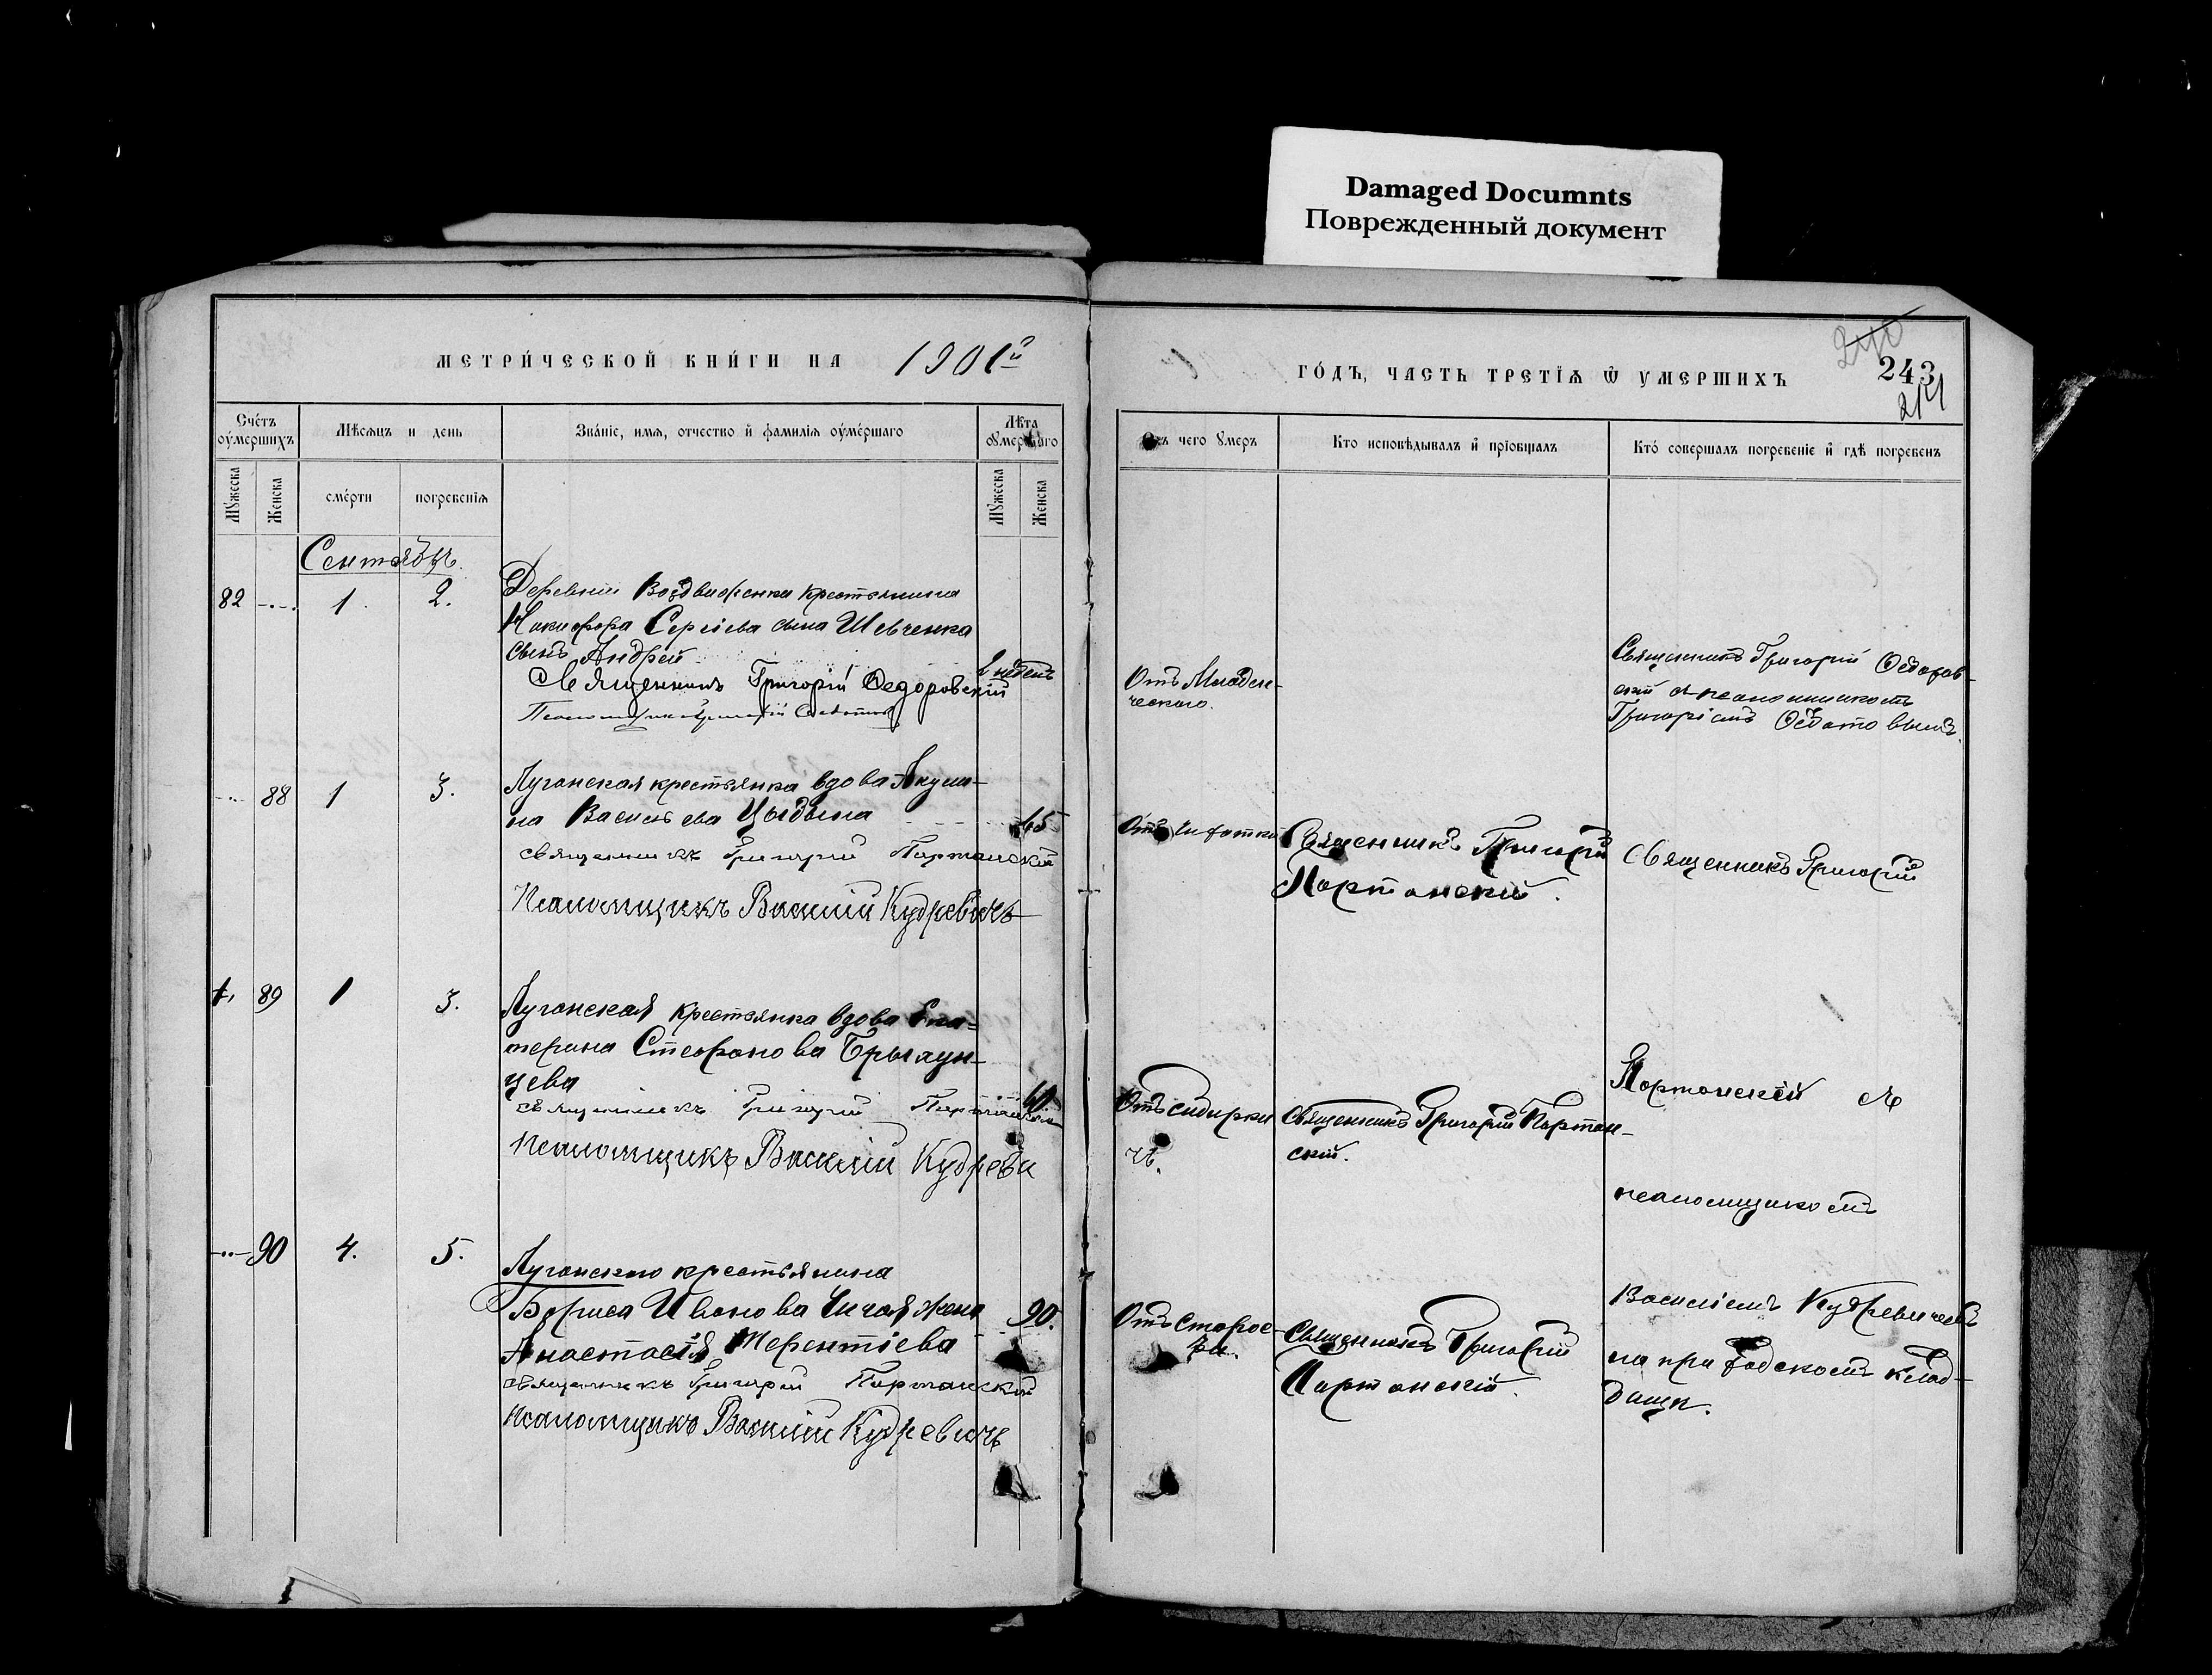 Damaged Documnts
Поврежденный документ
МЕТРИ́ЧЕСКОЙ КНИ́ГИ НА 1901й
ГО́ДЪ, ЧАСТЬ ТРЕТІЯ Ѿ УМЕРШИХЪ
240
243
Сче́тъ оу́мершихъ
Мѣсяцъ и день
Зва́ніе, имя, отчество и фамилія оуме́ршаго
Лѣта оумершаго
Отъ чего умеръ
Кто исповѣдывалъ и пріобщалъ
Кто́ совершалъ погребеніе и гдѣ погребенъ
Мужеска
Женска
сме́рти
погребенія
Мужеска
Женска
Сентябрь.
82 1. 2.
Деревни Воздвиженки крестьянина
Никифора Сергіева сына Шевченка
сынъ Андрей
Священникъ Григорій Федоровскій
Отъ Младен-
ческаго.
Священникъ Григорій Федоров-
скій съ псаломщикомъ
Григоріемъ
88 1 3.
Луганская крестьянка вдова Акули-
на Васильева Цыбына
65
священникъ Григорій Партанскій
Псаломщикъ Василій Кудревичъ
Священникъ Григорій
Партанскій.
Священникъ Григорій
89 1 3.
Луганская крестьянка вдова Ека-
терина Стефанова Брылун-
цева
60
священникъ Григорій Партанскій
Псаломщикъ Василій Кудреви
Отъ сибирки
Священникъ Григорій Партан-
скій.
Партанскій съ
псаломщикомъ
90 4. 5.
Луганскаго крестьянина
Бориса Иванова Чигая жена
Анастасія Терентіева
90.
священникъ Григорій Партанскій
Псаломщикъ Василій Кудревичъ
Отъ старос-
ти.
Священникъ Григорій
Партанскій.
Василіемъ Кудревичемъ
на приходскомъ клад-
бищи.